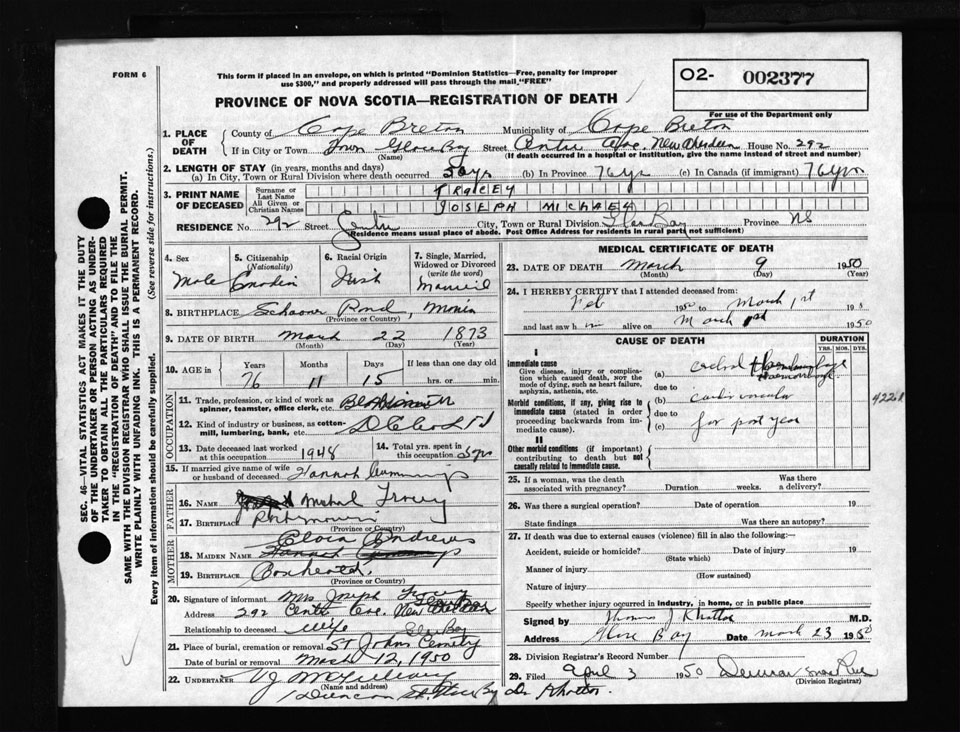 FORM 6
This form if placed in an envelope, on which is printed "Dominion Statistics—Free, penalty for improper
use $300," and properly addressed will pass through the mail, "FREE"
O2- 002377
For use of the Department only
PROVINCE OF NOVA SCOTIA—REGISTRATION OF DEATH
SEC. 46—VITAL STATISTICS ACT MAKES IT THE DUTY
OF THE UNDERTAKER OR PERSON ACTING AS UNDER-
TAKER TO OBTAIN ALL THE PARTICULARS REQUIRED
IN THE "REGISTRATION OF DEATH" AND TO FILE THE
SAME WITH THE DIVISION REGISTRAR WHO SHALL ISSUE THE BURIAL PERMIT.
WRITE PLAINLY WITH UNFADING INK. THIS IS A PERMANENT RECORD.
Every item of information should be carefully supplied. (See reverse side for instructions.)
1. PLACE OF DEATH
County of Cape Breton Municipality of Cape Breton
If in City or Town Town Glace Bay Street Centre Ave. New Aberdeen House No. 292
(Name) (If death occurred in a hospital or institution, give the name instead of street and number)
2. LENGTH OF STAY (in years, months and days)
(a) In City, Town or Rural Division where death occurred 50 yrs (b) In Province 76 yrs (c) In Canada (if immigrant) 76 yrs
3. PRINT NAME OF DECEASED
Surname or Last Name TRACEY
All Given or Christian Names JOSEPH MICHAEL
RESIDENCE No. 292 Street Centre City, Town or Rural Division Glace Bay Province NS
(Residence means usual place of abode. Post Office Address for residents in rural parts not sufficient)
4. Sex Male
5. Citizenship (Nationality) Canadian
6. Racial Origin Irish
7. Single, Married, Widowed or Divorced (write the word) Married
8. BIRTHPLACE Schooner Pond,
(Province or Country)
9. DATE OF BIRTH March 22 1873
(Month) (Day) (Year)
10. AGE in Years 76 Months 11 Days 15 If less than one day old hrs. or min.
OCCUPATION
11. Trade, profession, or kind of work as spinner, teamster, office clerk, etc.
12. Kind of industry or business, as cotton-mill, lumbering, bank, etc.
13. Date deceased last worked at this occupation 1948
14. Total yrs. spent in this occupation
15. If married give name of wife or husband of deceased Hannah Cummings
FATHER
16. NAME Michael Tracey
17. BIRTHPLACE
(Province or Country)
MOTHER
18. MAIDEN NAME Andrews
19. BIRTHPLACE
(Province or Country)
20. Signature of informant Mrs Joseph Tracey
Address 292 Centre Ave. New Aberdeen
Relationship to deceased wife Glace Bay
21. Place of burial, cremation or removal St Johns Cemetery
Date of burial or removal March 12, 1950
22. UNDERTAKER V J McGillivary
(Name and address)
MEDICAL CERTIFICATE OF DEATH
23. DATE OF DEATH March 9 1950
(Month) (Day) (Year)
24. I HEREBY CERTIFY that I attended deceased from:
Feb 1950 to March 1st 19
and last saw him alive on March 1st 1950
CAUSE OF DEATH
DURATION
YRS. MOS. DYS.
I
Immediate cause
Give disease, injury or complication which caused death, not the mode of dying, such as heart failure, asphyxia, asthenia, etc.
(a)
due to
(b)
Morbid conditions, if any, giving rise to immediate cause (stated in order proceeding backwards from immediate cause).
due to
(c) for past year
II
Other morbid conditions (if important) contributing to death but not causally related to immediate cause.
25. If a woman, was the death associated with pregnancy? Duration weeks. Was there a delivery?
26. Was there a surgical operation? Date of operation 19
State findings Was there an autopsy?
27. If death was due to external causes (violence) fill in also the following:—
Accident, suicide or homicide? Date of injury 19
(State which)
Manner of injury
(How sustained)
Nature of injury
Specify whether injury occurred in industry, in home, or in public place
Signed by Thomas J Khattar M.D.
Address Glace Bay Date March 23 1950
28. Division Registrar's Record Number
29. Filed April 3 1950
(Division Registrar)